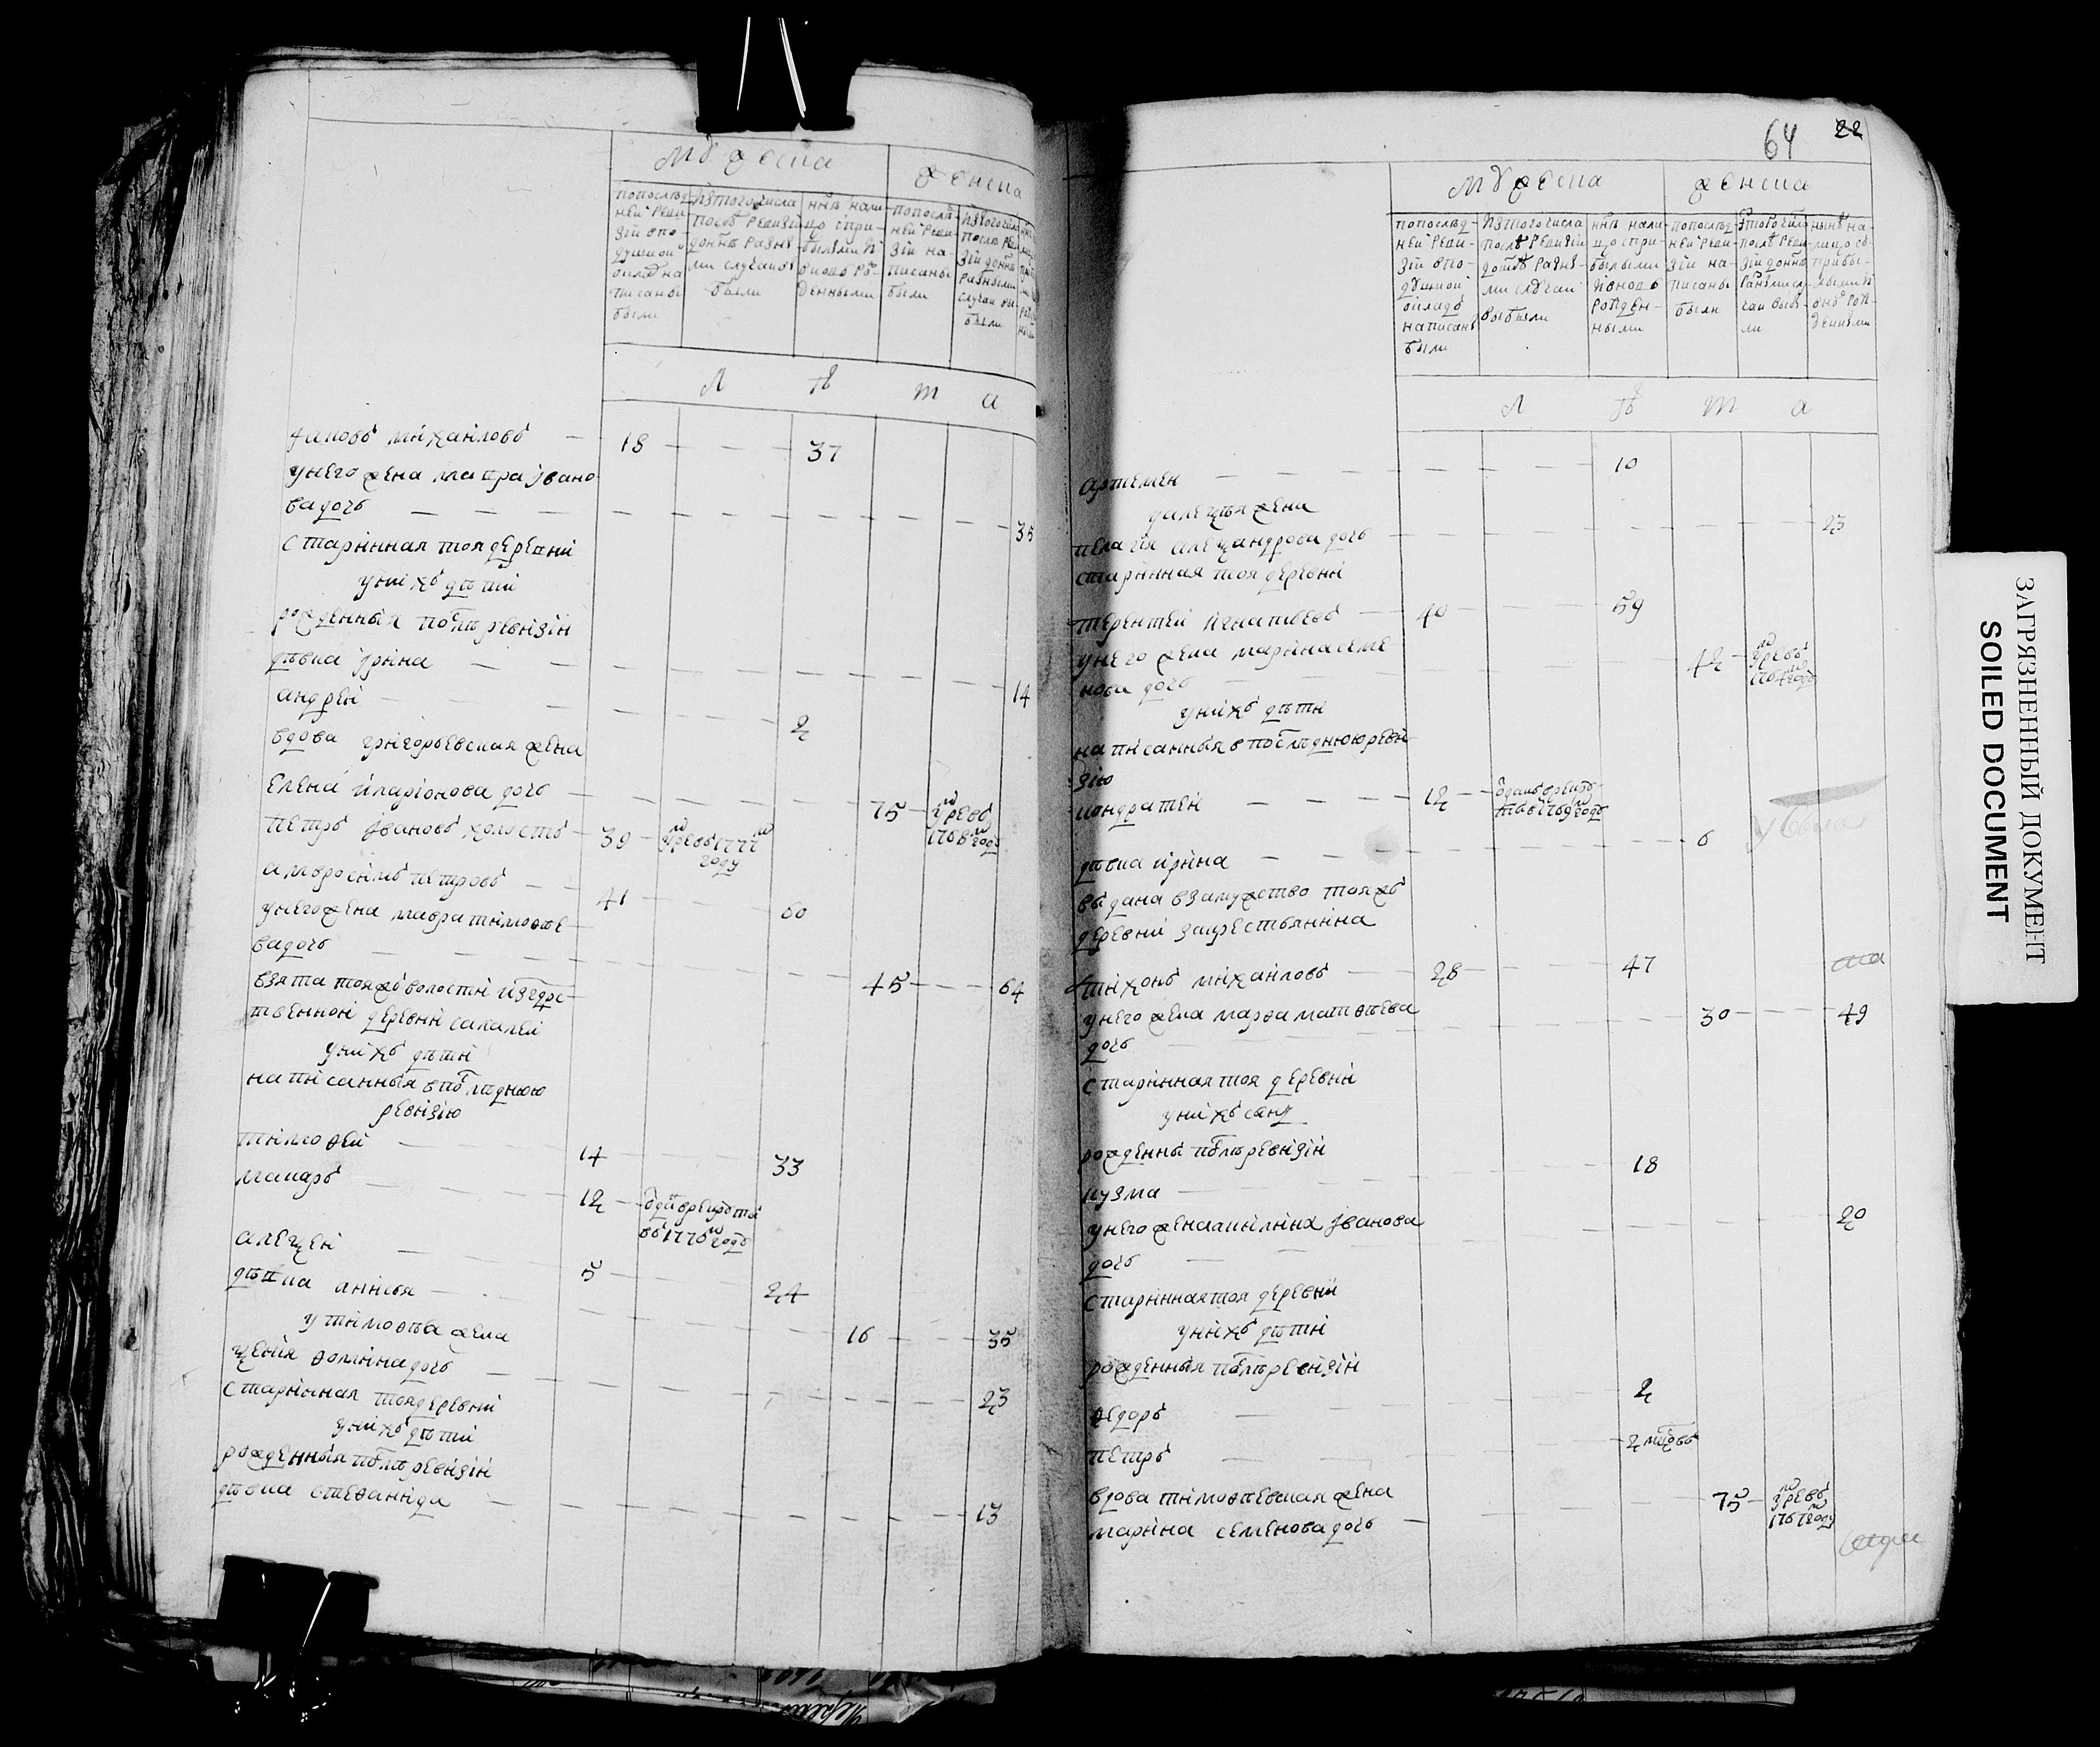 мужеска
женска
попослѣд-
ней реви-
зіи впо-
душной
окладъ на-
писаны
были
изтого числа
послѣ ревизіи
донынѣ разны-
ми случаи вы-
были
нынѣ нали-
цо спри-
былыми и
вновь ро-
жденными
попослѣ-
дней реви-
зіи на-
писаны
были
изтого числа
послѣ реви-
зіи донынѣ
разными
случаи вы-
были
Л ѣ т а
яковъ михаиловъ — 18 — — 37
унего жена мавра ивано
ва дочь — — — 35
старинная тоя деревни
унихъ дѣти
рожденныя послѣ ревизіи
дѣвка ирина — — 14
андреи — — 2
вдова григорьевская жена
елена иларіонова дочь — — 75 — умре въ 1768м году
петръ ивановъ холостъ — 39 — умре въ 1777м году
амвросимъ петровъ — 41 — — 60
унего жена мавра тимофѣе
ва дочь — — 45 — — 64
взята тояжъ волости изгдрс-
твенной деревни сакалеи
унихъ дѣти
написанныя впослѣднюю
ревизію
тимофеи — 14 — — 33
макаръ — 12 — отданъ врекруты въ 1776м годъ
алеѯеи — 5 — — 24
дѣвка анисья — — 16 — — 35
у тимофѣя жена
ѯенія фомина дочь — — 23
старинная тоя деревни
унихъ дѣти
рожденныя послѣ ревизіи
дѣвка стефанида — — 13
64 22
мужеска
женска
попослѣд-
ней реви-
зіи впо-
душной
окладъ
написаны
были
изтого числа
послѣ ревизіи
донынѣ разны-
ми случаи
выбыли
нынѣ нали-
цо спри-
былыми
ивновь
рожден-
ными
попослѣд-
ней реви-
зіи на-
писаны
были
изтого числа
послѣ реви-
зіи донынѣ
разными слу-
чаи выбы-
ли
нынѣ на-
лицо съ
прибы-
лыми и
вновь рож-
денными
Л ѣ т а
артемеи — — 10
у алеѯѣя жена
пелагія алеѯандрова дочь — — 23
старинная тоя деревни
терентеи игнатьевъ — 40 — — 59
унего жена марина семе
нова дочь — — 42 — умре въ 1764м году
унихъ дѣти
написанныя впослѣднюю реви
зію
кондратеи — 12 — отданъ врекруты въ 1769м годъ
дѣвка ирина — — 6
выдана взамужство тояжъ
деревни закрестьянина
тихонъ михаиловъ — 28 — — 47
унего жена марфа матфѣева — 30 — — 49
дочь
старинная тоя деревни
унихъ сынъ
рожденны послѣ ревизіи
кузма — — 18
унего жена акилина иванова — — 20
дочь
старинная тоя деревни
унихъ дѣти
рожденныя послѣ ревизіи
федоръ — — 2
петръ — — 2 мцовъ
вдова тимофѣевская жена
марина семенова дочь — — 75 — умре въ 1767м году
ЗАГРЯЗНЕННЫЙ ДОКУМЕНТ
SOILED DOCUMENT